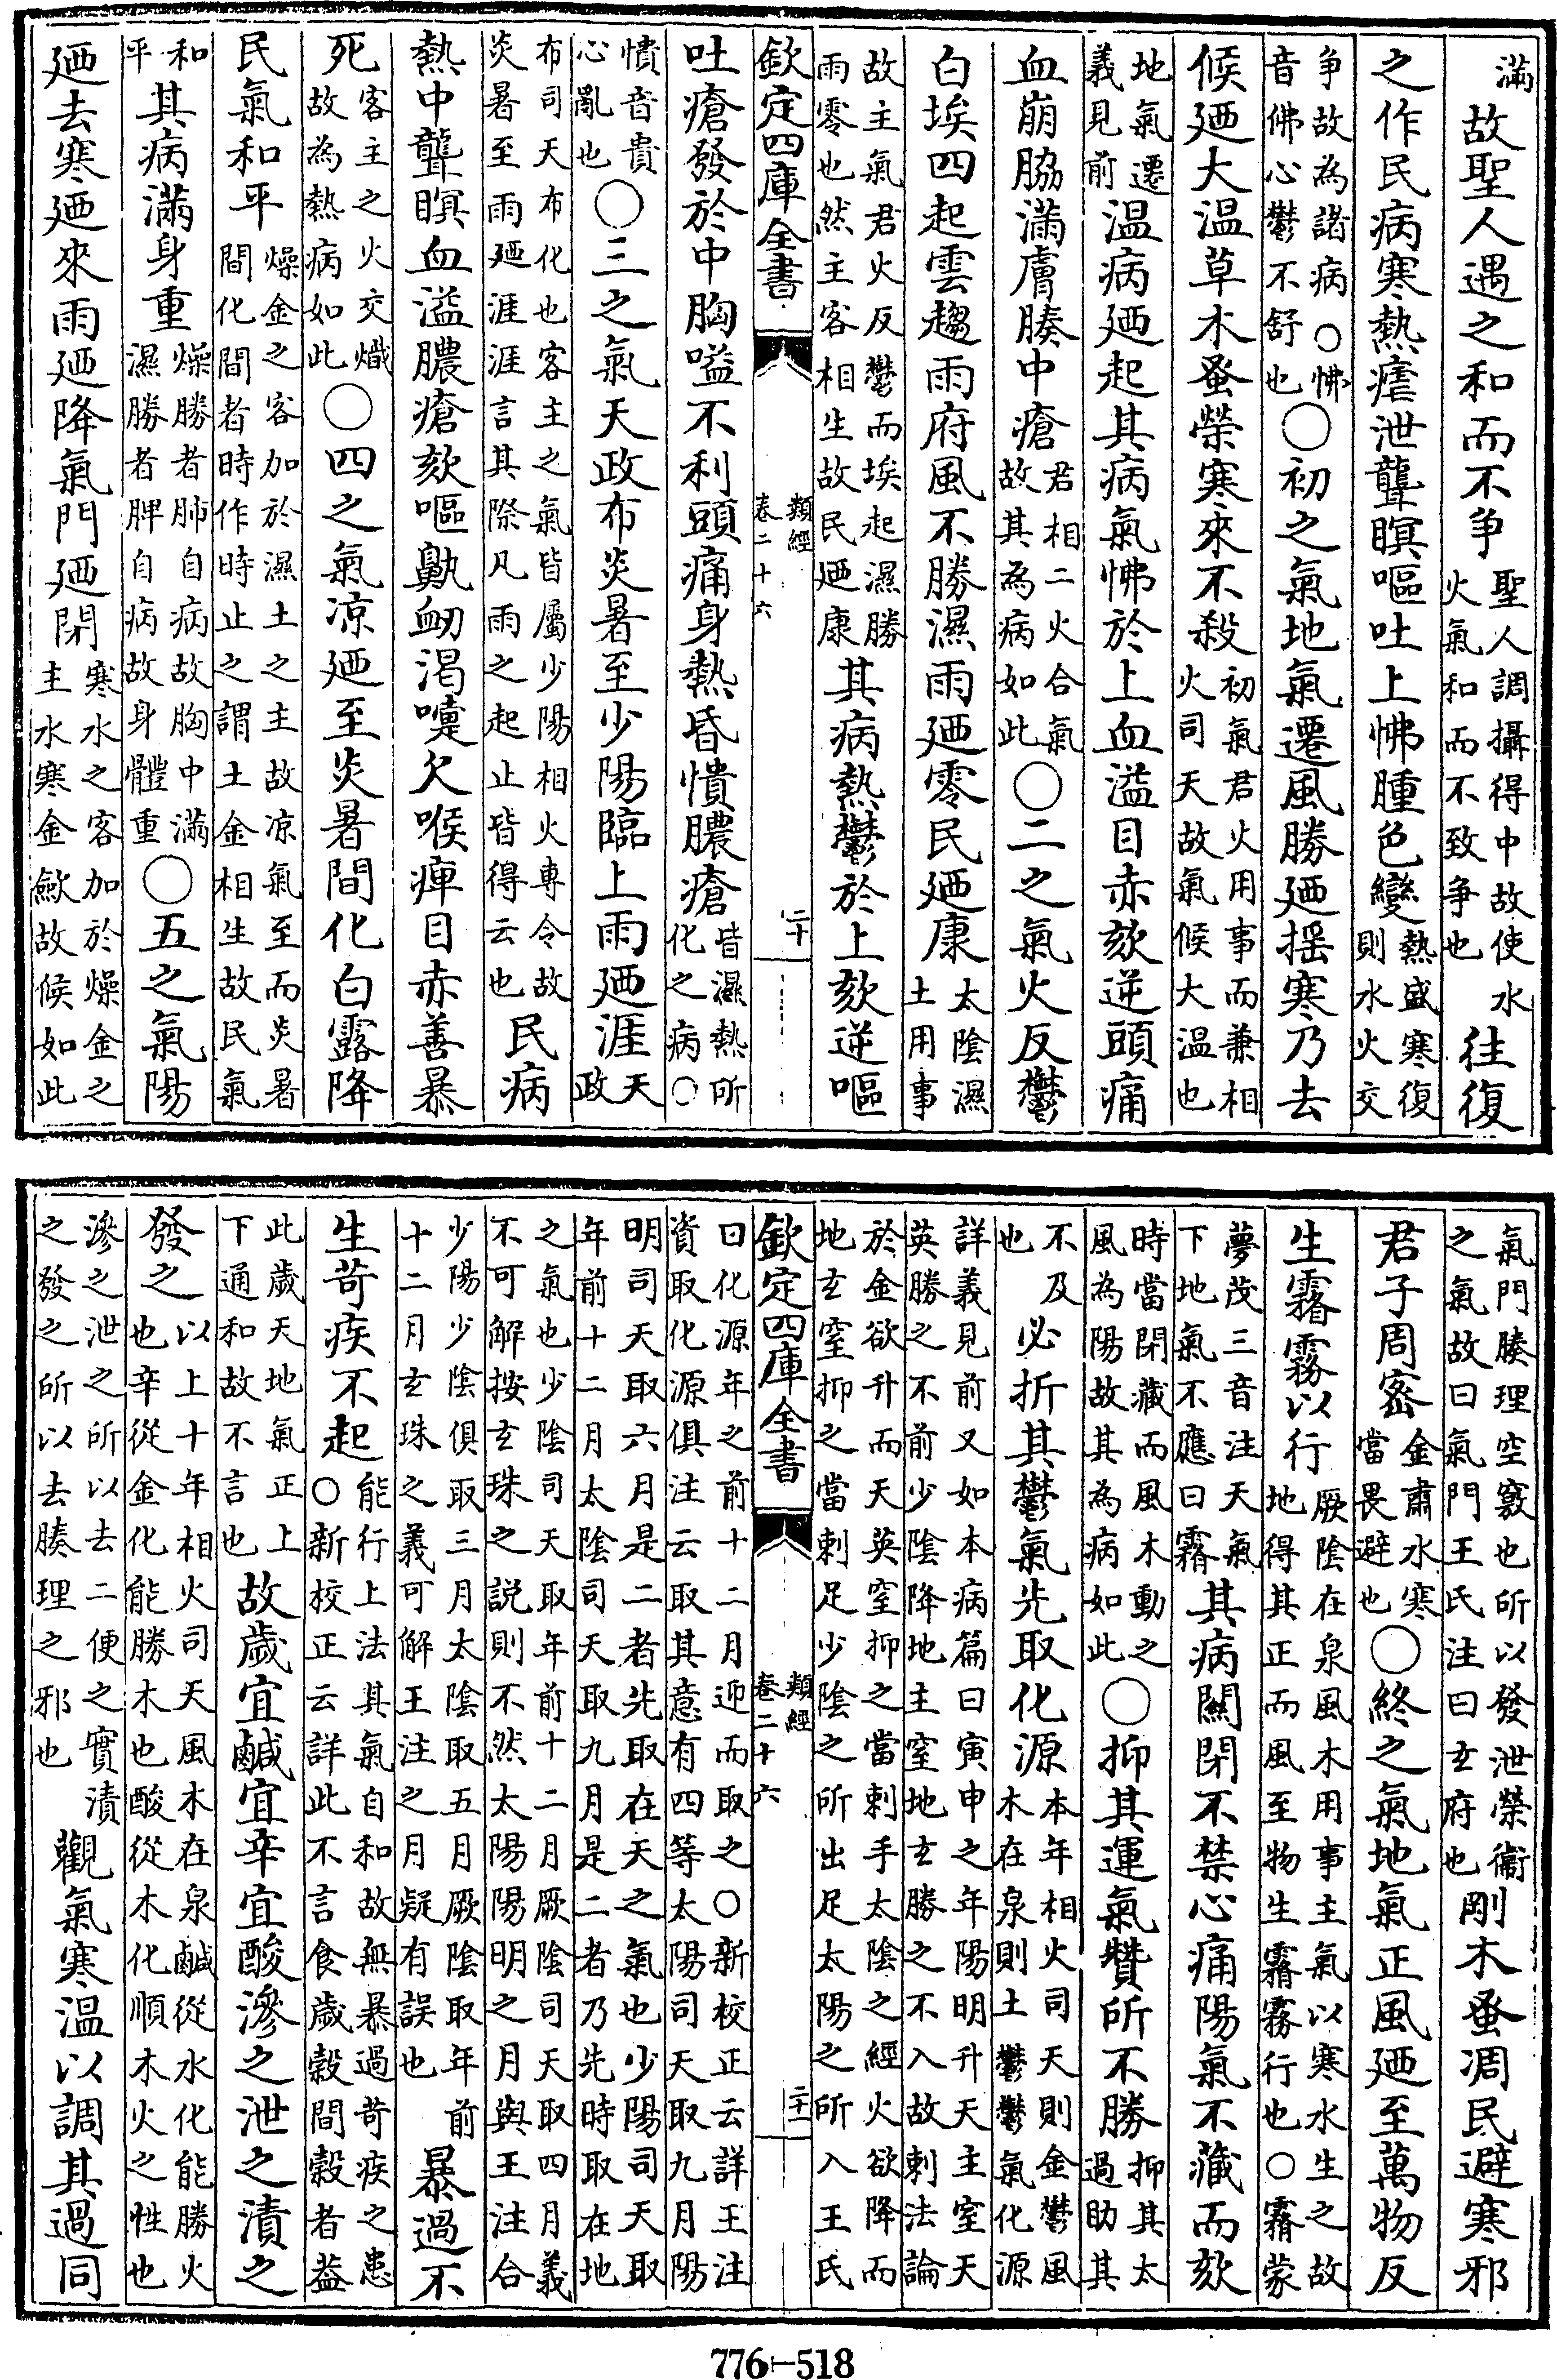 滿故聖人遇之和而不爭聖人調攝得中故使水火氣和而不致爭也往復
之作民病寒熱瘧泄聾瞑嘔吐上怫腫色變熱盛寒復則水火交
爭故為諸病○怫音佛心鬱不舒也○初之氣地氣遷風勝廼揺寒乃去
候廼大温草木蚤榮寒來不殺初氣君火用事而兼相火司天故氣候大温也
地氣遷義見前温病廼起其病氣怫於上血溢目赤欬逆頭痛
血崩脇滿膚腠中瘡君相二火合氣故其為病如此○二之氣火反鬱
白埃四起雲趨雨府風不勝濕雨廼零民廼康太陰濕土用事
故主氣君火反鬱而埃起濕勝雨零也然主客相生故民廼康其病熱鬱於上欬逆嘔
欽定四庫全書 類經卷二十六 二十
吐瘡發於中胸嗌不利頭痛身熱昏憒膿瘡皆濕熱所化之病○
憒音貴心亂也○三之氣天政布炎暑至少陽臨上雨廼涯天政
布司天布化也客主之氣皆屬少陽相火專令故炎暑至雨廼涯涯言其際凡雨之起止皆得云也民病
熱中聾瞑血溢膿瘡欬嘔鼽衂渴嚏欠喉痺目赤善暴
死客主之火交熾故為熱病如此○四之氣凉廼至炎暑間化白露降
民氣和平燥金之客加於濕土之主故凉氣至而炎暑間化間者時作時止之謂土金相生故民氣
和平其病滿身重燥勝者肺自病故胸中滿濕勝者脾自病故身體重○五之氣陽
廼去寒廼來雨廼降氣門廼閉寒水之客加於燥金之主水寒金歛故候如此
氣門腠理空竅也所以發泄榮衞之氣故曰氣門王氏注曰玄府也剛木蚤凋民避寒邪
君子周密金肅水寒當畏避也○終之氣地氣正風廼至萬物反
生霿霧以行厥陰在泉風木用事主氣以寒水生之故地得其正而風至物生霿霧行也○霿蒙
夢茂三音注天氣下地氣不應曰霿其病關閉不禁心痛陽氣不藏而欬
時當閉藏而風木動之風為陽故其為病如此○抑其運氣贊所不勝抑其太過助其
不及也必折其鬱氣先取化源本年相火司天則金鬱風木在泉則土鬱鬱氣化源
詳義見前又如本病篇曰寅申之年陽明升天主窒天英勝之不前少陰降地主窒地玄勝之不入故刺法論
於金欲升而天英窒抑之當刺手太陰之經火欲降而地玄窒抑之當刺足少陰之所出足太陽之所入王氏
欽定四庫全書 類經卷二十六 二十一
曰化源年之前十二月迎而取之○新校正云詳王注資取化源俱注云取其意有四等太陽司天取九月陽
明司天取六月是二者先取在天之氣也少陽司天取年前十二月太陰司天取九月是二者乃先時取在地
之氣也少陰司天取年前十二月厥陰司天取四月義不可解按玄珠之説則不然太陽陽明之月與王注合
少陽少陰俱取三月太陰取五月厥陰取年前十二月玄珠之義可解王注之月疑有誤也暴過不
生苛疾不起能行上法其氣自和故無暴過苛疾之患○新校正云詳此不言食歲穀間穀者葢
此歲天地氣正上下通和故不言也故歲宜鹹宜辛宜酸滲之泄之漬之
發之以上十年相火司天風木在泉鹹從水化能勝火也辛從金化能勝木也酸從木化順木火之性也
滲之泄之所以去二便之實漬之發之所以去腠理之邪也觀氣寒温以調其過同
776-518